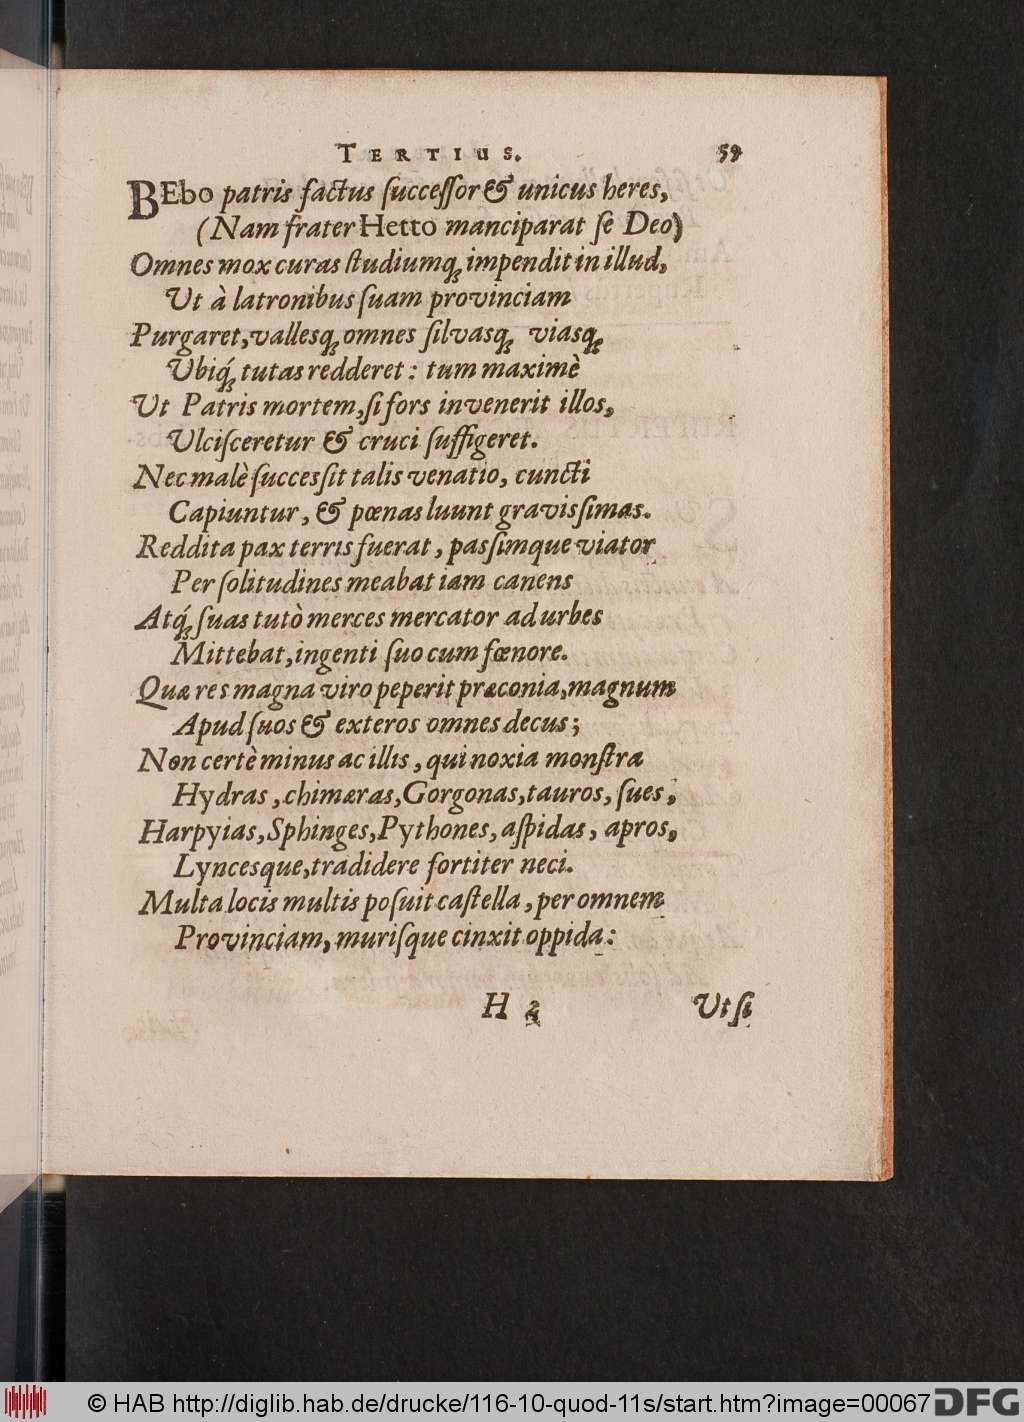 TERTIUS. 59
BEbo patris factus ſucceſſor & unicus heres,
(Nam frater Hetto manciparat ſe Deo)
Omnes mox curas ſtudiumq́; impendit in illud,
Ut à latronibus ſuam provinciam
Purgaret, vallesq́; omnes ſilvasq́; viasq́;
Ubiq́; tutas redderet: tum maximè
Ut Patris mortem, ſi fors invenerit illos,
Ulciſceretur & cruci ſuffigeret.
Nec malè ſuccesſit talis venatio, cuncti
Capiuntur, & pœnas luunt gravisſimas.
Reddita pax terris fuerat, pasſimque viator
Per ſolitudines meabat iam canens
Atq́; ſuas tutò merces mercator ad urbes
Mittebat, ingenti ſuo cum fœnore.
Quæ res magna viro peperit præconia, magnum
Apud ſuos & exteros omnes decus;
Non certè minus ac illis, qui noxia monſtra
Hydras, chimæras, Gorgonas, tauros, ſues,
Harpyias, Sphinges, Pythones, aſpidas, apros,
Lyncesque, tradidere fortiter neci.
Multa locis multis poſuit caſtella, per omnem
Provinciam, murisque cinxit oppida:
H 2 Ut ſi
© HAB http://diglib.hab.de/drucke/116-10-quod-11s/start.htm?image=00067 DFG